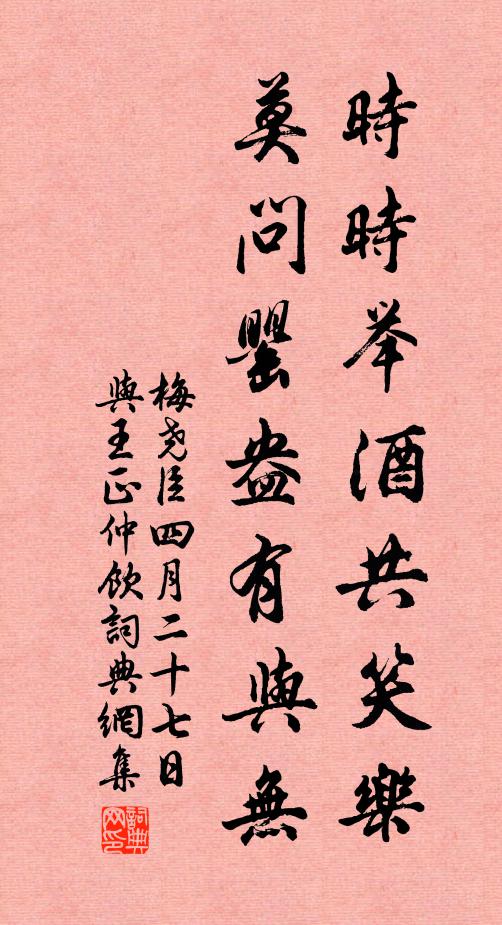 時時举酒共笑樂
莫問罌盎有與無
梅尧臣四月二十七日
與王正仲飲詞典網集
詞典网印